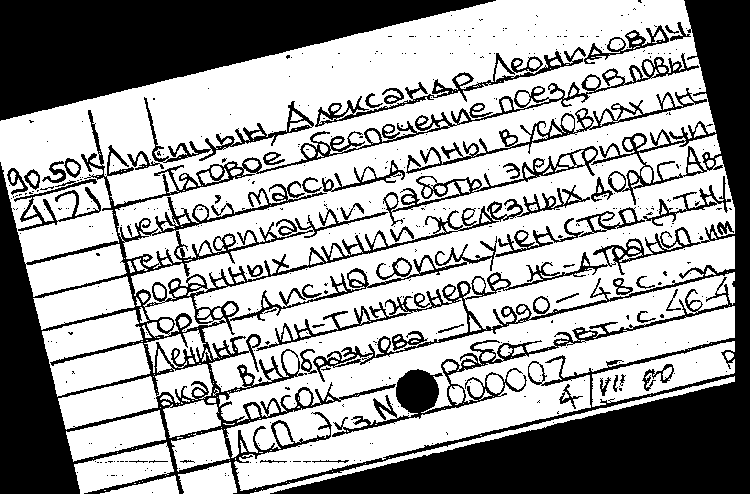 90-50К Лисицын, Александр Леонидович.
4171 Тяговое обеспечение поездов повы-
шенной массы и длины в условиях ин-
тенсификации работы электрифици-
рованных линий железных дорог: Ав-
тореф. дис. на соиск. учен. степ. д.т.н/
Ленингр. ин-т инженеров ж.-д трансп. им
акад. В.Н Образцова.—Л., 1990.— 48 с.:
Список работ авт.: с. 46-4
ДСП. Экз. N 000007.
4/VII 90